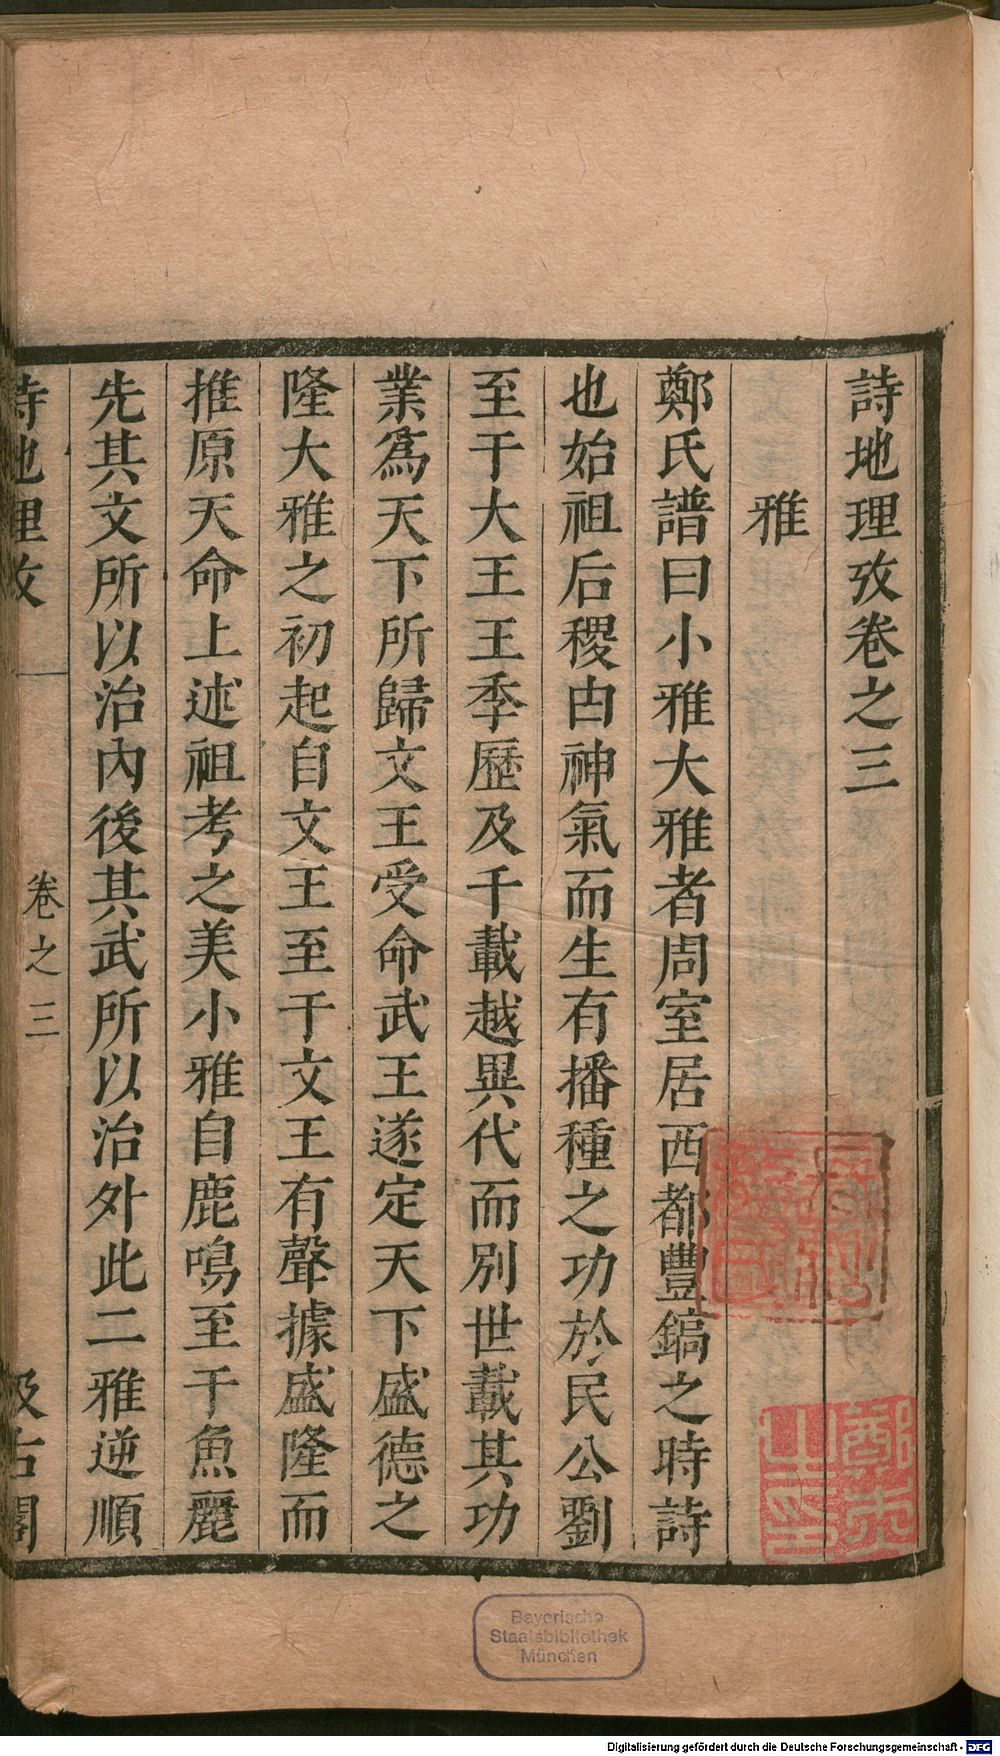 詩地理攷卷之三
雅
鄭氏譜曰小雅大雅者周室居西都豐鎬之時詩
也始祖后稷由神氣而生有播種之功於民公劉
至于大王王季歷及千載越異代而別世載其功
業爲天下所歸文王受命武王遂定天下盛德之
隆大雅之初起自文王至于文王有聲據盛隆而
推原天命上述祖考之美小雅自鹿鳴至于魚麗
先其文所以治內後其武所以治外此二雅逆順
詩地理攷
卷之三
汲古閣
Bayerische
Staatsbibliothek
München
Digitalisierung gefördert durch die Deutsche Forschungsgemeinschaft - DFG